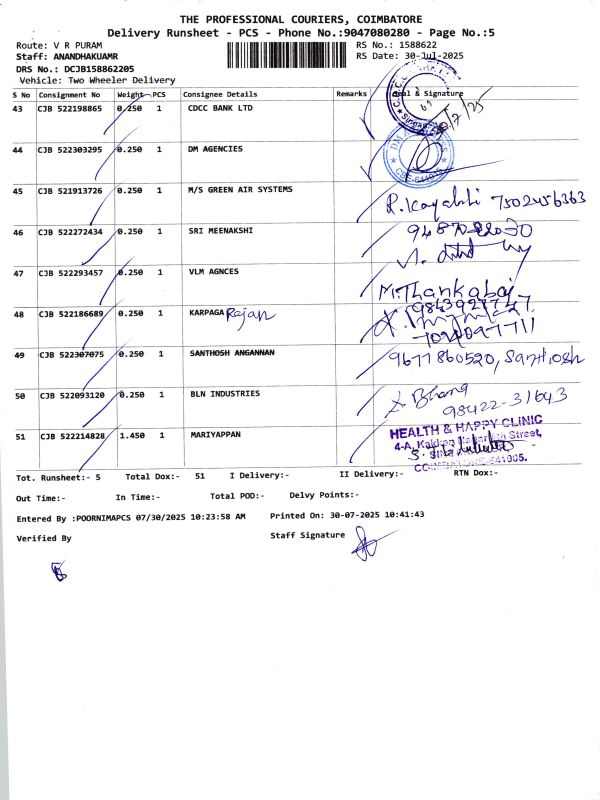 THE PROFESSIONAL COURIERS, COIMBATORE
Delivery Runsheet - PCS - Phone No.:9047080280 - Page No.:5
Route: V R PURAM RS No.: 1588622
Staff: ANANDHAKUAMR RS Date: 30-Jul-2025
DRS No.: DCJB158862205
Vehicle: Two Wheeler Delivery
S No Consignment No Weight PCS Consignee Details Remarks & Signature
43 CJB 522198865 0.250 1 CDCC BANK LTD
/7/25
44 CJB 522303295 0.250 1 DM AGENCIES
45 CJB 521913726 0.250 1 M/S GREEN AIR SYSTEMS
46 CJB 522272434 0.250 1 SRI MEENAKSHI
47 CJB 522293457 0.250 1 VLM AGNCES
M.Thankabai
48 CJB 522186689 0.250 1 KARPAGA Rajan
49 CJB 522307075 0.250 1 SANTHOSH ANGANNAN 9677860520, Santhosh
50 CJB 522093120 0.250 1 BLN INDUSTRIES
98422-31643
51 CJB 522214828 1.450 1 MARIYAPPAN HEALTH & HAPPY CLINIC
4-A, Street,
Tot. Runsheet:- 5 Total Dox:- 51 I Delivery:- II Delivery:- RTN Dox:-
Out Time:- In Time:- Total POD:- Delvy Points:-
Entered By :POORNIMAPCS 07/30/2025 10:23:58 AM Printed On: 30-07-2025 10:41:43
Verified By Staff Signature